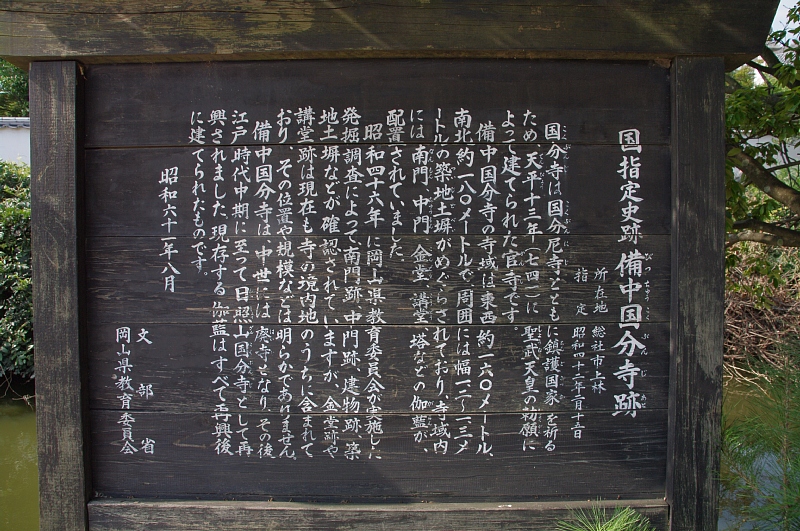 国指定史跡 備中国分寺跡
所在地 総社市上林
指定 昭和四十三年二月十五日
国分寺は国分尼寺とともに鎮護国家を祈る
ため、天平十三年(七四一)に聖武天皇の勅願に
よって建てられた官寺です。
備中国分寺の寺域は東西約一六〇メートル、
南北約一八〇メートルで、周囲には幅一.二〜一.三メ
ートルの築地土塀がめぐらされており、寺域内
には南門、中門、金堂、講堂、塔などの伽藍が、
配置されていました。
昭和四十六年に岡山県教育委員会が実施した
発掘調査によって南門跡、中門跡、建物跡、築
地土塀などが確認されていますが、金堂跡や
講堂跡は現在も寺の境内地のうちに含まれて
おり、その位置や規模などは明らかでありません。
備中国分寺は、中世には廃寺となり、その後
江戸時代中期に至って日照山国分寺として再
興されました。現存する伽藍はすべて再興後
に建てられたものです。
昭和六十一年八月
文部省
岡山県教育委員会